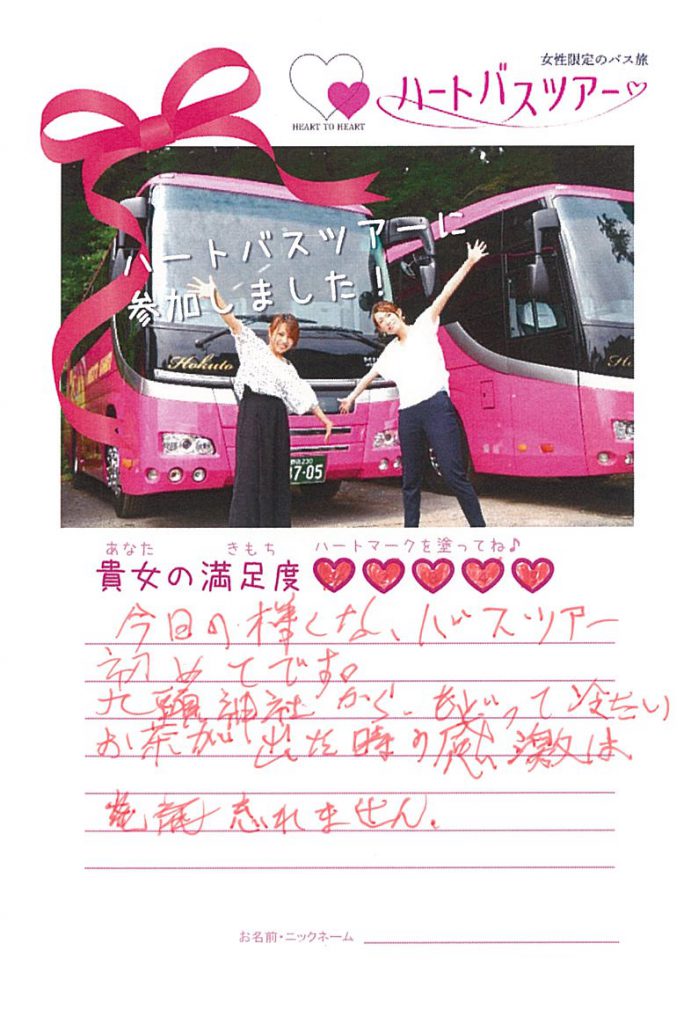 女性限定のバス旅
ハートバスツアー
HEART TO HEART
ハートバスツアーに
参加しました!
Hokuto
37-05
あなた きもち ハートマークを塗ってね♪
貴女の満足度
今日の様くな、バスツアー
初めてです。
九頭神社から、もどって冷たい
お茶が出た時の感激は
忘れません。
お名前・ニックネーム